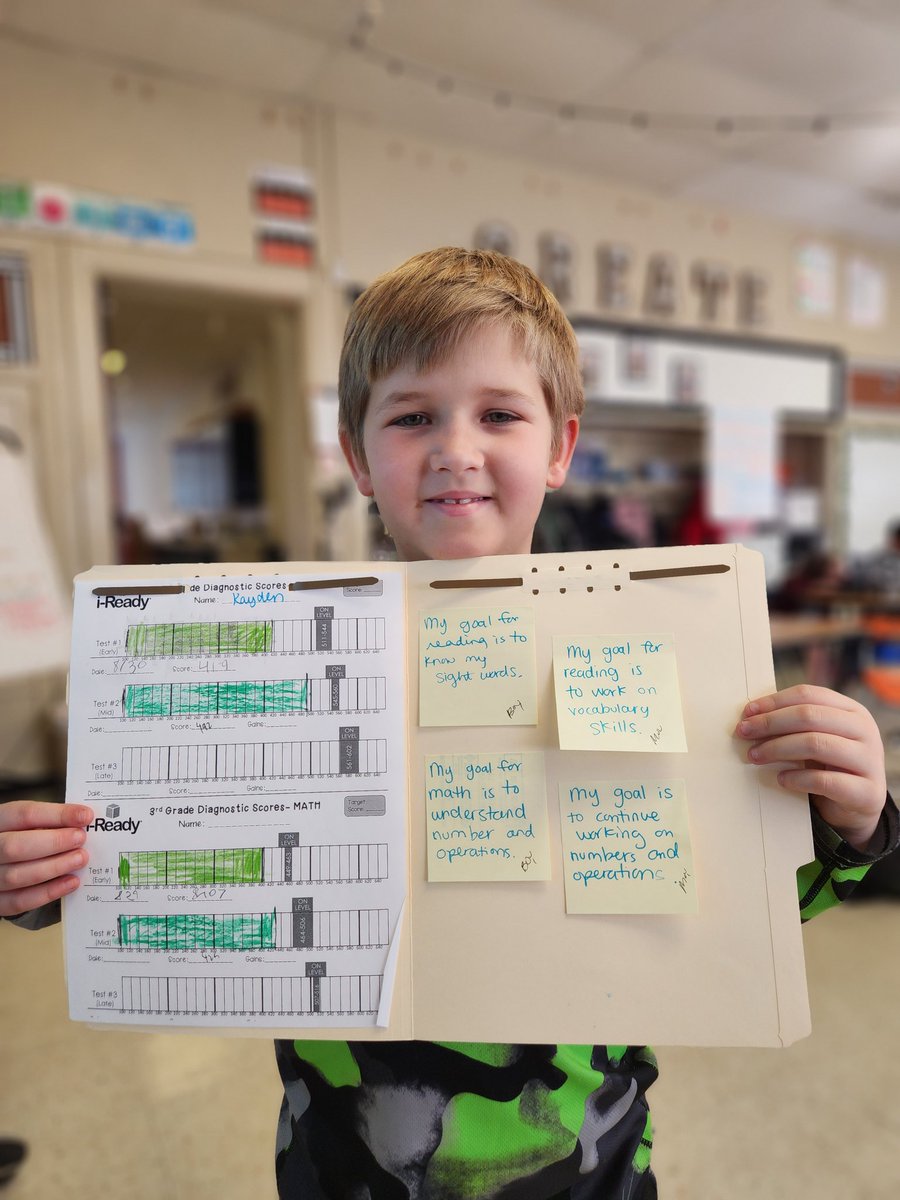 CREATE
de Diagnostic Scores
Score:
i-Ready
Name: Kayden
ON LEVEL
511-544
Test #1
(Early)
Date: 8/30 Score: 419
ON LEVEL
Test #2
(Mid)
Date: Score: 482 Gains:
ON LEVEL
Test #3
(Late)
3rd Grade Diagnostic Scores- MATH
Target Score:
i-Ready
Name:
ON LEVEL
449-463
Test #1
(Early)
Date: 829 Score:
ON LEVEL
464-506
Test #2
(Mid)
Date: Score: Gains:
ON LEVEL
Test #3
(Late)
My goal for
reading is to
know my
sight words.
BOY
My goal for
reading is
to work on
vocabulary
skills.
My goal for
math is to
understand
number and
operations.
BOY
My goal is
to continue
working on
numbers and
operations